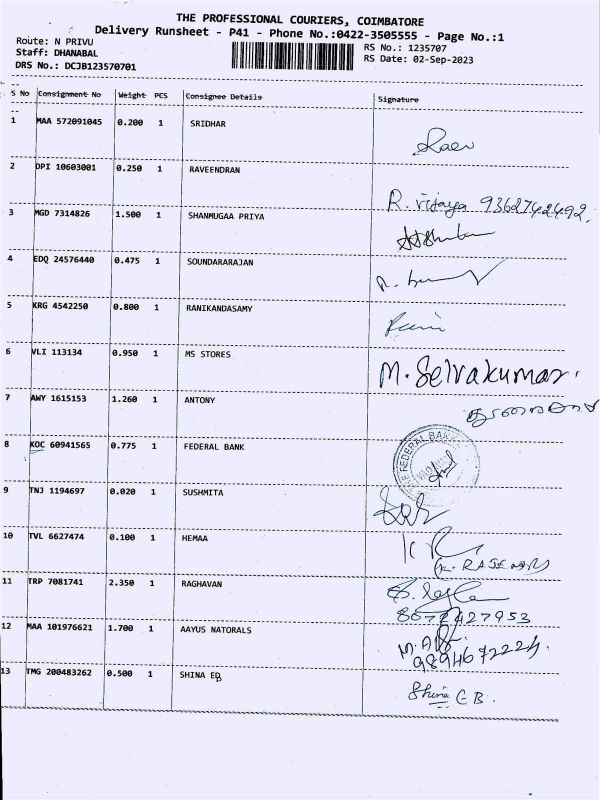 THE PROFESSIONAL COURIERS, COIMBATORE
Delivery Runsheet - P41 - Phone No.:0422-3505555 - Page No.:1
Route: N PRIVU
RS No.: 1235707
Staff: DHANABAL
RS Date: 02-Sep-2023
DRS No.: DCJB123570701
S No Consignment No Weight PCS Consignee Details Signature
1 MAA 572091045 0.200 1 SRIDHAR
2 DPI 10603001 0.250 1 RAVEENDRAN
R. vijaya 9362742492.
3 MGD 7314826 1.500 1 SHANMUGAA PRIYA
4 EDQ 24576440 0.475 1 SOUNDARARAJAN
5 KRG 4542250 0.800 1 RANIKANDASAMY
6 VLI 113134 0.950 1 MS STORES
M. Selvakumar.
7 AWY 1615153 1.260 1 ANTONY
8 KOC 60941565 0.775 1 FEDERAL BANK
FEDERAL BANK
9 TNJ 1194697 0.020 1 SUSHMITA
10 TVL 6627474 0.100 1 HEMAA
11 TRP 7081741 2.350 1 RAGHAVAN
12 MAA 101976621 1.700 1 AAYUS NATORALS
9894672224
13 TMG 200483262 0.500 1 SHINA EB
Shina C B.